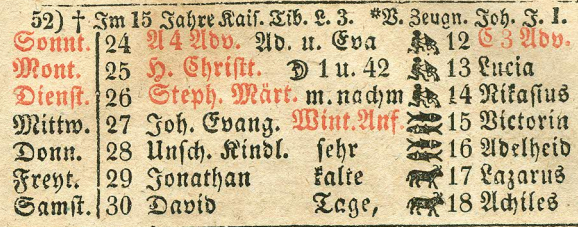 52) † Im 15 Jahre Kais. Tib. L. 3. *V. Zeugn. Joh. J. 1.
Sonnt. 24 A 4 Adv. Ad. u. Eva 12 C 3 Adv.
Mont. 25 H. Christt. D 1 u. 42 13 Lucia
Dienst. 26 Steph. Märt. m. nachm 14 Nikasius
Mittw. 27 Joh. Evang. Wint. Anf. 15 Victorin
Donn. 28 Unsch. Kindl. sehr 16 Adelheid
Freyt. 29 Jonathan kalte 17 Lazarus
Samst. 30 David Tage, 18 Achiles